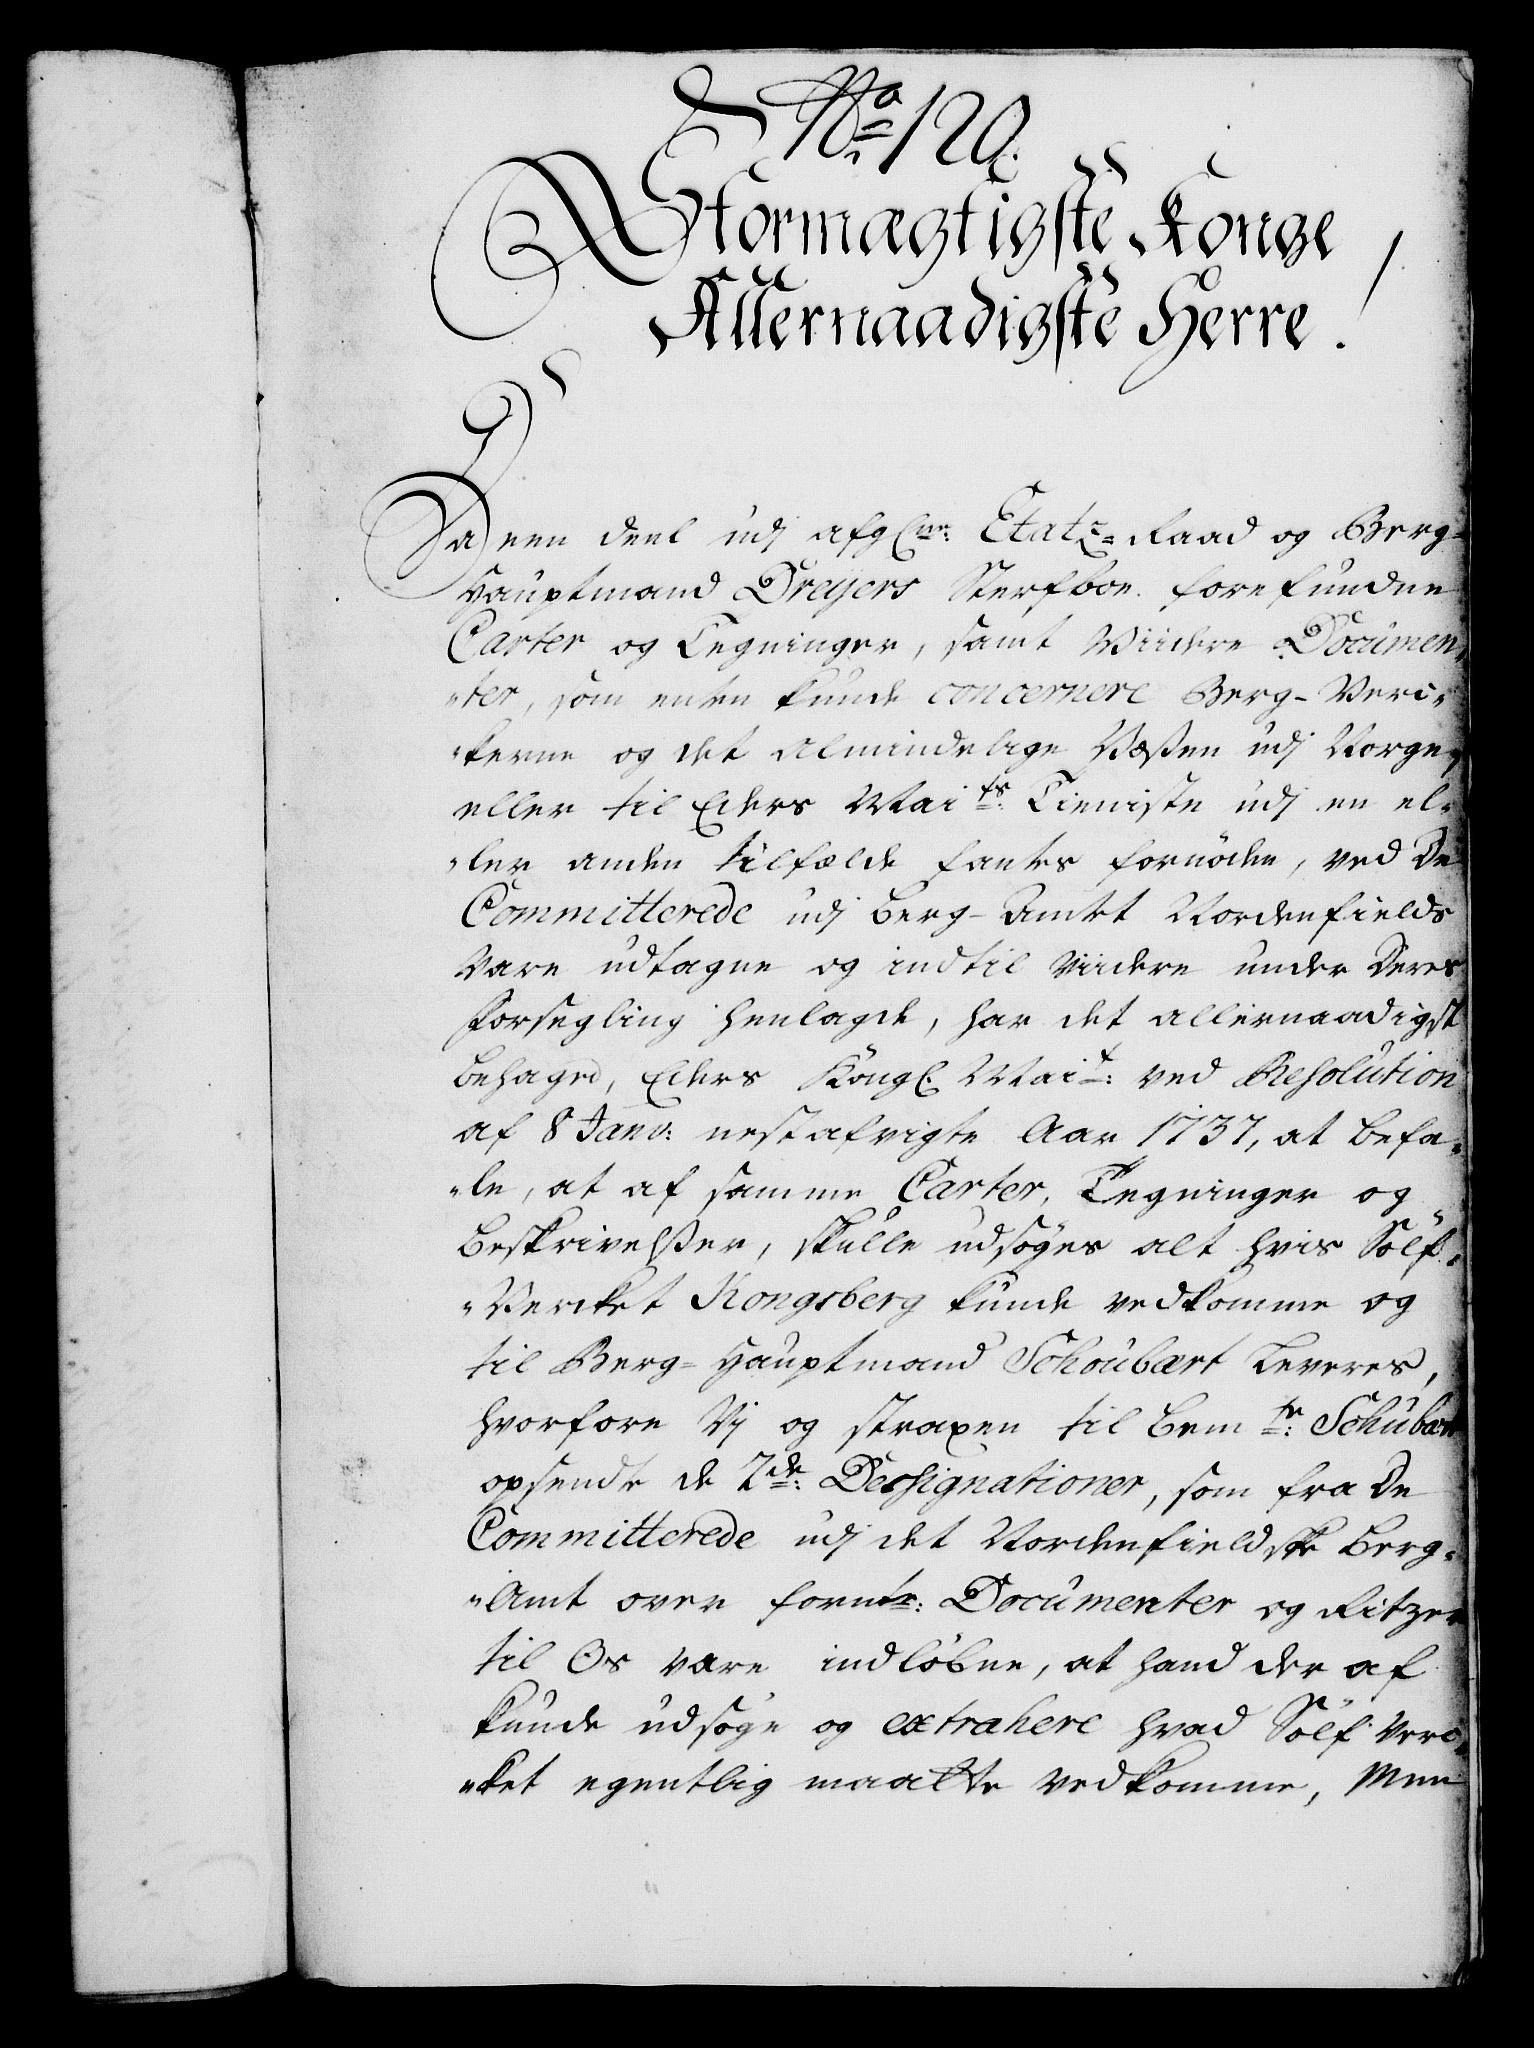 No. 120.
Stormægtigste Konge
Allernaadigste Herre!
Da een deel udj afg. Etatz-Raad og Berg-
Hauptmand Dreyers Sterfboe forefundne
Carter og Tegninger, samt Viidere Documen-
-ter, som enten kunde concernere Berg-Verc-
-kerne og det almindelige Væsen udj Norge,
eller til Eders Maits: Tieniste udj en el-
-ler anden tilfælde fantes fornöden, ved De
Committerede udj Berg-Amtet Nordenfields
Vare udtagne og indtil Viidere under Deres
Forsegling henlagde, har det allernaadigst
behaged, Eders Kongl. Mait: ved Resolution
af 8 Janv: nestafvigte Aar 1737, at befa-
-le, at af samme Carter, Tegninger og
Beskrivelßer, skulle udsöges alt hvis Sölf-
-Vercket Kongsberg kunde vedkomme og
til Berg-Hauptmand Schoubært Leveres,
hvorfore Vj og straxen til bemte: Schubært
opsendte de 2de: Dessignationer, som fra De
Committerede udj det Nordenfieldske Berg-
-Amt over fornte: Documenter og Ritzer
til Os vare indlöbne, at hand der af
kunde udsöge og extrahere hvad Sölf Verc-
-ket egentlig maatte vedkomme, Men